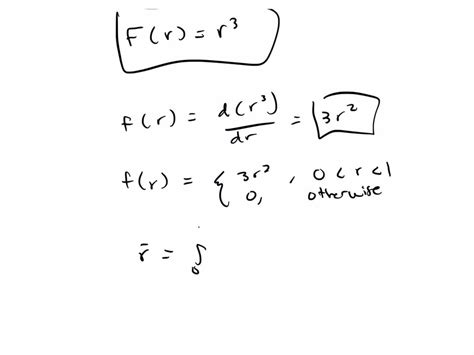 F(r) = r³
f(r) = d(r³)/dr = 3r²
f(r) = { 3r², 0 < r < 1
0, otherwise
r̄ = ∫₀